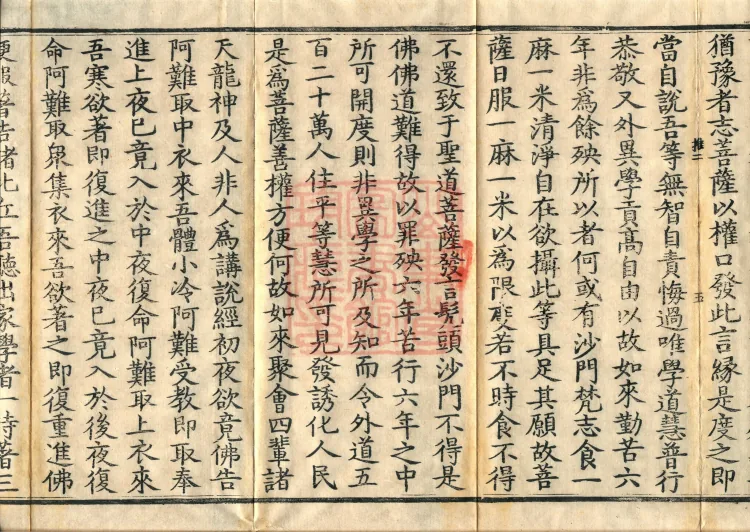 猶豫者志菩薩以權口發此言緣是度之即
當自說吾等無智自責悔過唯學道慧普行
推二
五
恭敬又外異學貢高自由以故如來勤苦六
年非為餘殃所以者何或有沙門梵志食一
麻一米清淨自在欲攝此等具足其願故菩
薩日服一麻一米以為限礙若不時食不得
不還致于聖道菩薩發言髡頭沙門不得是
佛佛道難得故以罪殃六年苦行六年之中
所可開度則非異學之所及知而令外道五
百二十萬人住平等慧所可見發誘化人民
是為菩薩善權方便何故如來聚會四輩諸
天龍神及人非人為講說經初夜欲竟佛告
阿難取中衣來吾體小冷阿難受教即取奉
進上夜已竟入於中夜復命阿難取上衣來
吾寒欲著即復進之中夜已竟入於後夜復
命阿難取眾集衣來吾欲著之即復重進佛
便服著告諸比丘吾聽出家學者一時著三